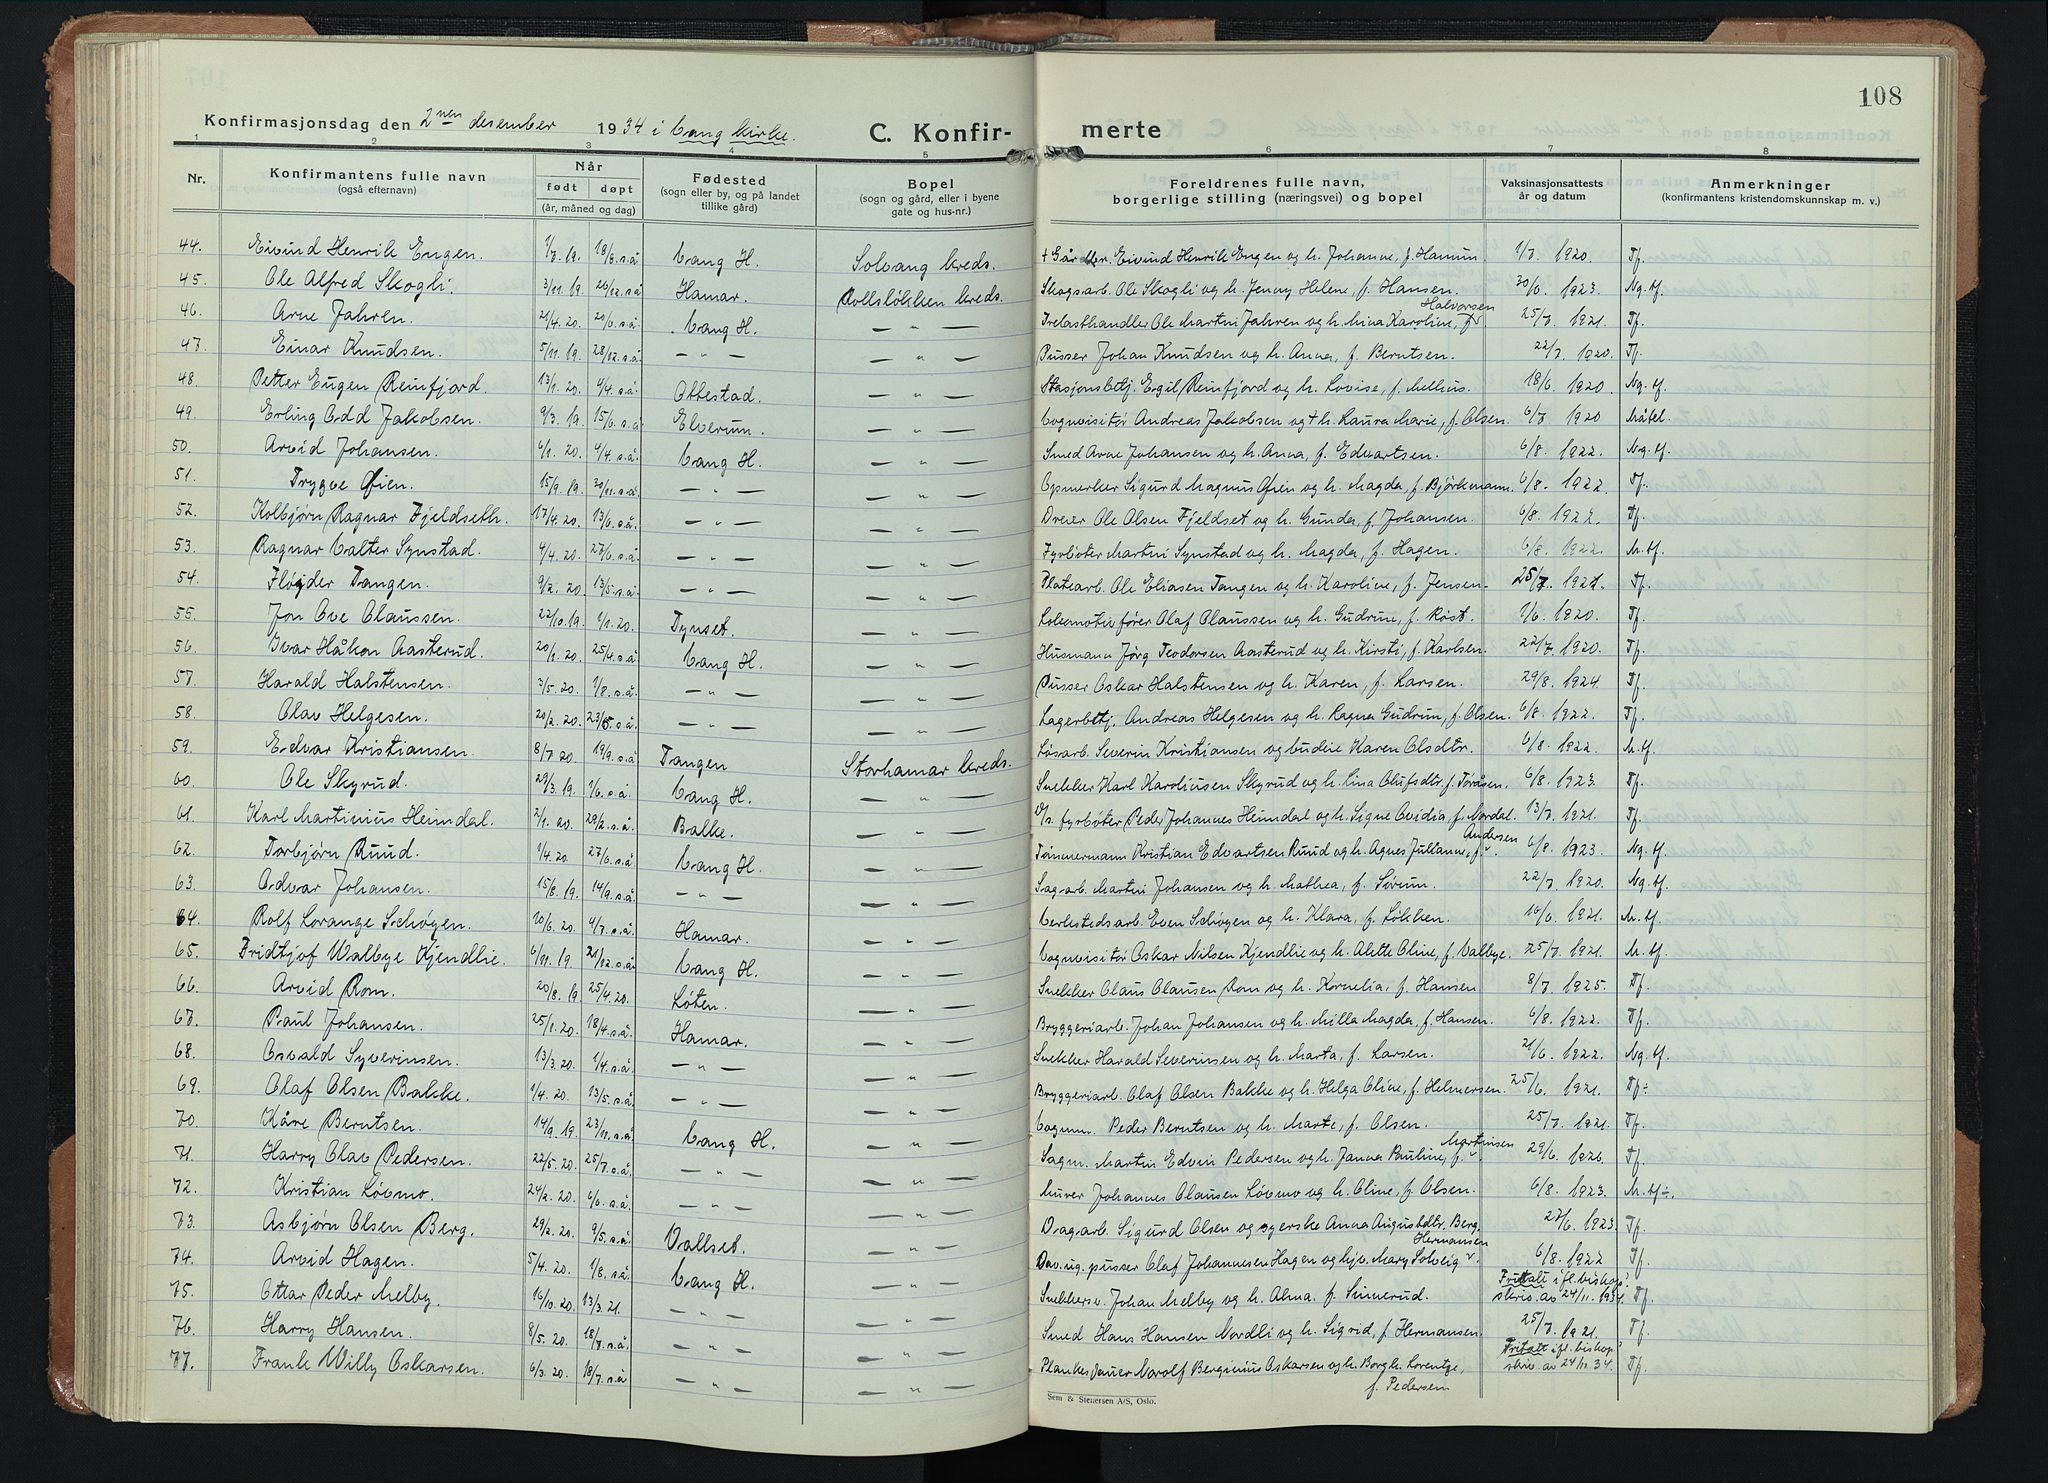 108
Konfirmasjonsdag den 2nen desember 1934 i Vang kirke. C. Konfir- merte
1 2 3 4 5 6 7 8
Nr. Konfirmantens fulle navn (også efternavn) Når født døpt (år, måned og dag) Fødested (sogn eller by, og på landet tillike gård) Bopel (sogn og gård, eller i byene gate og hus-nr.) Foreldrenes fulle navn, borgerlige stilling (næringsvei) og bopel Vaksinasjonsattests år og datum Anmerkninger (konfirmantens kristendomskunnskap m. v.)
44. Eivind Henrik Engen. 1/7 19. 18/8. s.å Vang H. Solvang kreds. + Gårdbr. Eivind Henrik Engen og h. Johanne, f. Hamun 1/7 1920. Tf.
45. Ole Alfred Skogli. 3/11 19. 26/12. s.å Hamar. Rollsløkken kreds. Skogsarb. Ole Skogli og h. Jenny Helene, f. Hansen. 30/6. 1923. Ng. tf.
46. Arne Jahren. 21/4. 20. 20/6. s.å. Vang H. — „ — Trelasthandler Ole Martin Jahren og h. Mina Karoline, f. Halvorsen 25/7 1921. Tf.
47. Einar Knudsen. 5/11. 19. 28/12. s.å. — „ — — „ — Pusser Johan Knudsen og h. Anna, f. Berntsen. 22/7. 1920. Tf.
48. Petter Eugen Reinfjord. 13/1. 20. 4/4. s.å. Ottestad. — „ — Stasjonsbetj. Egil Reinfjord og h. Lovise, f. Melhus. 18/6. 1920 Ng. tf.
49. Erling Odd Jakobsen. 9/3. 19. 15/6. s.å Elverum. — „ — Vognvisitør Andreas Jakobsen og + h. Laura Marie, f. Olsen. 6/7 1920 Måtel.
50. Arvid Johansen. 6/1. 20. 4/4. s.å. Vang H. — „ — Smed Arne Johansen og h. Anna, f. Edvartsen. 6/8. 1922. Ng. tf.
51. Trygve Øien. 15/9. 19. 20/11. s.å — „ — — „ — Opmerker Sigurd Magnus Øien og h. Magda, f. Bjørkmann. 6/8. 1922. Tf.
52. Kolbjørn Ragnar Fjeldseth. 17/4. 20. 13/6. s.å. — „ — — „ — Dreier Ole Olsen Fjeldset og h. Gunda, f. Johansen. 6/8. 1922. Tf.
53. Ragnar Valter Synstad. 4/4. 20. 27/6. s.å. — „ — — „ — Fyrbøter Martin Synstad og h. Magda, f. Hagen. 6/8. 1922. M. tf.
54. Fløjder Tangen. 9/2. 20 13/5. s.å. — „ — — „ — Platearb. Ole Eliasen Tangen og h. Karoline, f. Jensen. 25/7. 1921. Tf.
55. Jon Ove Claussen. 22/10. 19. 1/1. 20. Tynset. — „ — Lokomotivfører Olaf Claussen og h. Gudrun, f. Røst. 1/6. 1920. Tf.
56. Ivar Håkon Aasterud. 20/1. 20. 25/4. s.å. Vang H. — „ — Husmann Jørg Teodorsen Aasterud og h. Kirsti, f. Karlsen. 22/7. 1920. Tf.
57. Harald Halstensen. 3/5. 20. 1/8. s.å. — „ — — „ — Pusser Oskar Halstensen og h. Karen, f. Larsen. 29/8. 1924. Tf.
58. Olav Helgesen. 20/2. 20. 23/5. s.å. — „ — — „ — Lagerbetj. Andreas Helgesen og h. Ragna Gudrun, f. Olsen. 6/8. 1922. Tf.
59. Edvar Kristiansen. 8/7 20. 19/9. s.å Tangen Storhamar kreds. Løsarb. Severin Kristiansen og budeie Karen Olsdtr. 6/8. 1922. M. tf.
60. Ole Skyrud. 29/3. 19. 1/6. s.å. Vang H. — „ — Snekker Karl Karolinsen Skyrud og h. Lina Olufsdtr. f. Toråsen. 6/8. 1923. Tf.
61. Karl Martinius Heimdal. 2/1. 20. 29/2. s.å. Balke. — „ — D/s. fyrbøter Peder Johannes Heimdal og h. Signe Ovidia, f. Nordal. 13/7. 1921. Tf.
62. Torbjørn Ruud. 1/4. 20. 27/6. s.å. Vang H. — „ — Tømmermann Kristian Edvartsen Ruud og h. Agnes Julianne, f. Andersen 6/8. 1923. Ng. tf.
63. Edvar Johansen. 15/8. 19. 14/9. s.å. — „ — — „ — Sagarb. Martin Johansen og h. Mathea, f. Sørum. 22/7. 1920. Ng. tf.
64. Rolf Lorange Schøyen. 10/6. 20. 4/7. s.å. Hamar. — „ — Verkstedsarb. Even Schøyen og h. Klara, f. Løkken. 16/6. 1921. M. tf.
65. Fridtjof Walbye Kjendlie. 6/11. 19. 21/12. s.å Vang H. — „ — Vognvisitør Oskar Nilsen Kjendlie og h. Alette Oline, f. Valbye. 25/7. 1921. M. tf.
66. Arvid Rom. 20/8. 19 25/4. 20. Løten. — „ — Snekker Claus Clausen Rom og h. Kornelia, f. Hansen 8/7. 1925. Tf.
67. Paul Johansen. 25/1. 20. 18/4. s.å. Hamar. — „ — Bryggeriarb. Johan Johansen og h. Milla Magda, f. Hansen. 6/8. 1922. Tf.
68. Osvald Syverinsen. 13/3. 20. 1/4. s.å. — „ — — „ — Snekker Harald Severinsen og h. Marta, f. Larsen. 21/6. 1922. Ng. tf.
69. Olaf Olsen Bakke. 1/4. 20. 13/5. s.å. — „ — — „ — Bryggeriarb. Olaf Olsen Bakke og h. Helga Oline, f. Helmersen. 25/6. 1921. Tf÷
70. Kåre Berntsen. 14/9. 19. 23/11. s.å Vang H. — „ — Vognm. Peder Berntsen og h. Marte, f. Olsen. 25/7. 1921. Tf.
71. Harry Olav Pedersen. 22/5. 20. 25/7. s.å — „ — — „ — Sagm. Martin Edvin Pedersen og h. Janna Pauline, f. Martinsen 29/6. 1926. Tf.
72. Kristian Løvmo. 24/2. 20. 6/6. s.å. — „ — — „ — Murer Johannes Clausen Løvmo og h. Oline, f. Olsen. 6/8. 1923. M. tf÷.
73. Asbjørn Olsen Berg. 29/2. 20. 9/5. s.å. Vallset. — „ — Dagarb. Sigurd Olsen og syerske Anna Augustdtr. Berg. 27/6. 1923. Tf.
74. Arvid Hagen. 5/4. 20. 1/8. s.å. Vang H. — „ — Dav. ug. pusser Olaf Johannesen Hagen og hjv. Mary Solveig Hermansen 6/8. 1922 Tf.
75. Ottar Peder Melby. 16/10. 20. 13/3. 21. — „ — — „ — Snekkersv. Johan Melby og h. Alma, f. Simerud. Fritatt ifl. biskops skriv. av 24/11. 1934. Tf.
76. Harry Hansen. 8/5. 20. 18/7. s.å. — „ — — „ — Smed Hans Hansen Nordli og h. Sigrid, f. Hermansen. 25/7. 1921. Tf.
77. Frank Willy Oskarsen. 6/3. 20. 18/7. s.å — „ — — „ — Plankestauer Norolf Berginius Oskarsen og h. Borgh. Lorentze, f. Pedersen Fritatt ifl. biskops skriv. av 24/11. 34. Tf.
Sem & Stenersen A/S, Oslo.